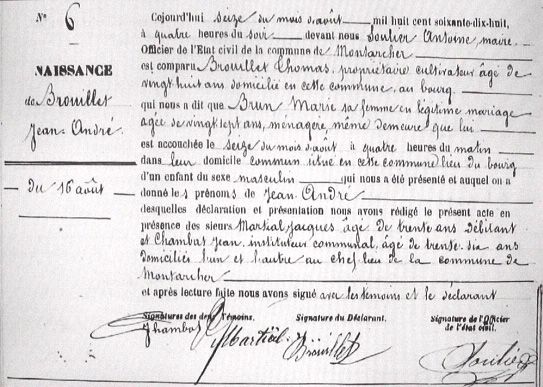 N° 6
NAISSANCE
de Brouillet
Jean-André
du 16 août
Cejourd'hui seize du mois d'août mil huit cent soixante-dix-huit,
à quatre heures du soir devant nous Soulier Antoine, maire
Officier de l'État civil de la commune de Montarcher
est comparu Brouillet Thomas, propriétaire cultivateur âgé de
vingt huit ans domicilié en cette commune, au bourg
qui nous a dit que Brun Marie sa femme en légitime mariage
âgée de vingt sept ans, ménagère, même demeure que lui
est accouchée le seize du mois d'août à quatre heures du matin
dans leur domicile commun situé en cette commune lieu du bourg
d'un enfant du sexe masculin qui nous a été présenté et auquel on a
donné les prénoms de Jean André
desquelles déclaration et présentation nous avons rédigé le présent acte en
présence des sieurs Martial Jacques âgé de trente ans débitant
et Chambat Jean, instituteur communal, âgé de trente-six ans
domiciliés l'un et l'autre au chef-lieu de la commune de
Montarcher
et après lecture faite nous avons signé avec les témoins et le déclarant
Signatures des deux Témoins. Signature du Déclarant. Signature de l'Officier
de l'état civil.
Chambat Martial Brouillet Soulier